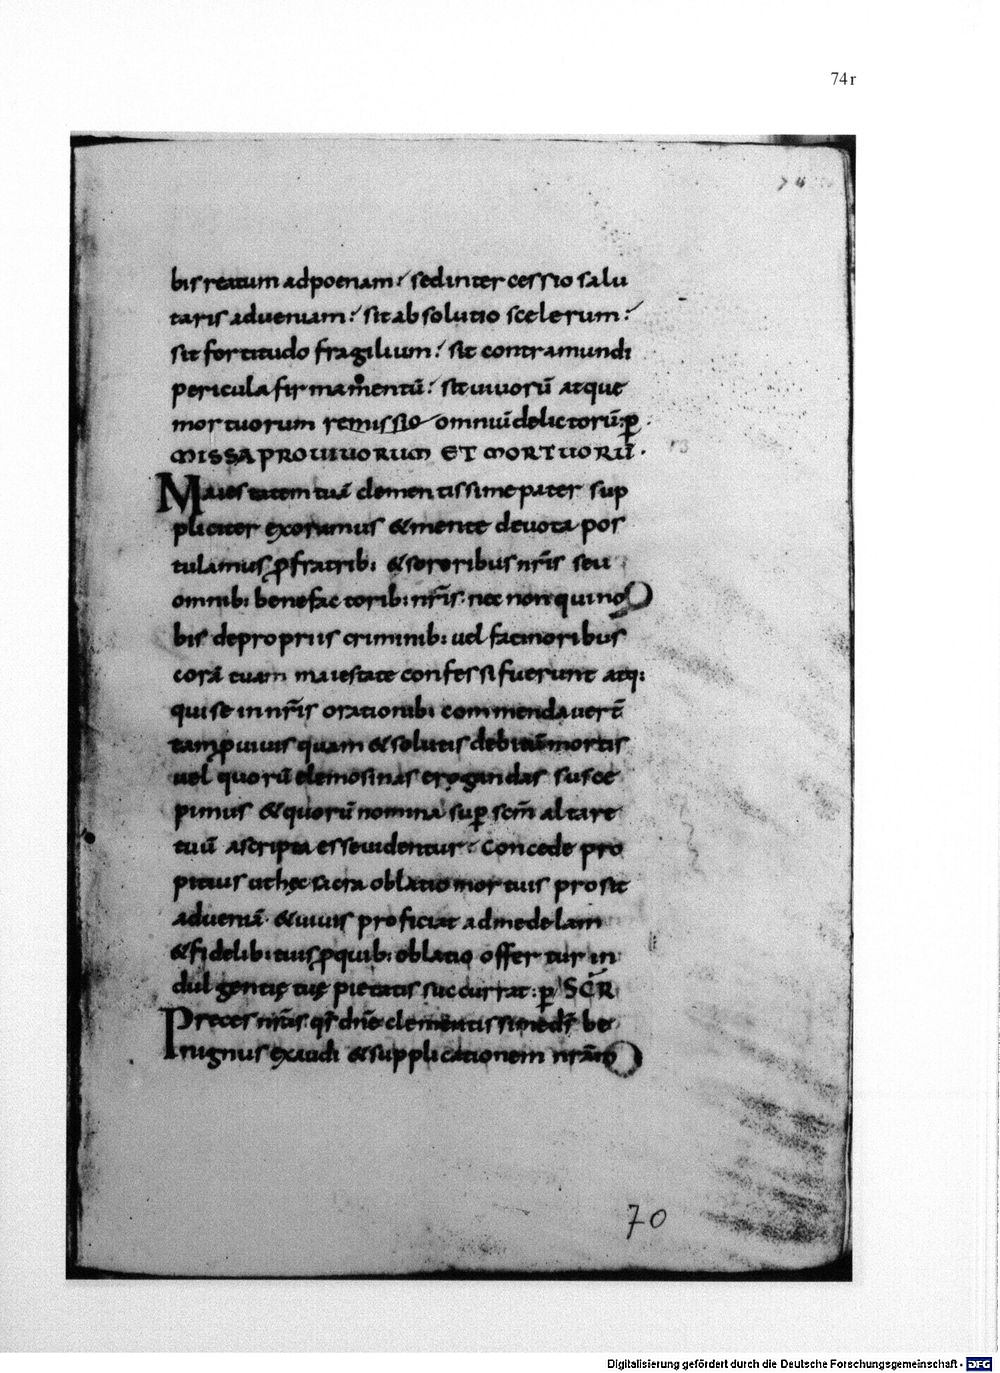 74r
74
bis reatum ad poenam? sed intercessio salu
taris adveniam? sit absolutio scelerum?
sit fortitudo fragilium? sit contra mundi
pericula firmamentū? sit vivorū atque
mortuorum remissio omniū delictorū: ꝑ
MISSA PRO VIVORUM ET MORTUORŪ·
Maiestatem tuā clementissime pater sup
pliciter exoramus & mente devota pos
tulamus ꝓ fratrib; & sororibus nr̄is seu
omnib; benefactorib; nr̄is· nec non qui no
bis de propriis criminib; vel facinoribus
corā tuam maiestate confessi fuerunt atq;
qui se in nr̄is orationib; commendaver̄t
tam ꝓ vivis quam & solutis debitū mortis
vel quorū elemosinas erogandas susce
pimus & quorū nomina suꝑ sc̄m altare
tuū ascripta esse videntur· Concede pro
pitius ut hęc sacra oblatio mortuis prosit
ad veniā· & vivis proficiat ad medelam
& fidelib; tuis ꝓ quib; oblatio offertur in
dulgentię tuę pietatis succurrat: ꝑ SCR̄
Preces nr̄as qs̄ dn̄e clementissime ds̄ be
nignus exaudi & supplicationem nr̄am
70
Digitalisierung gefördert durch die Deutsche Forschungsgemeinschaft - DFG